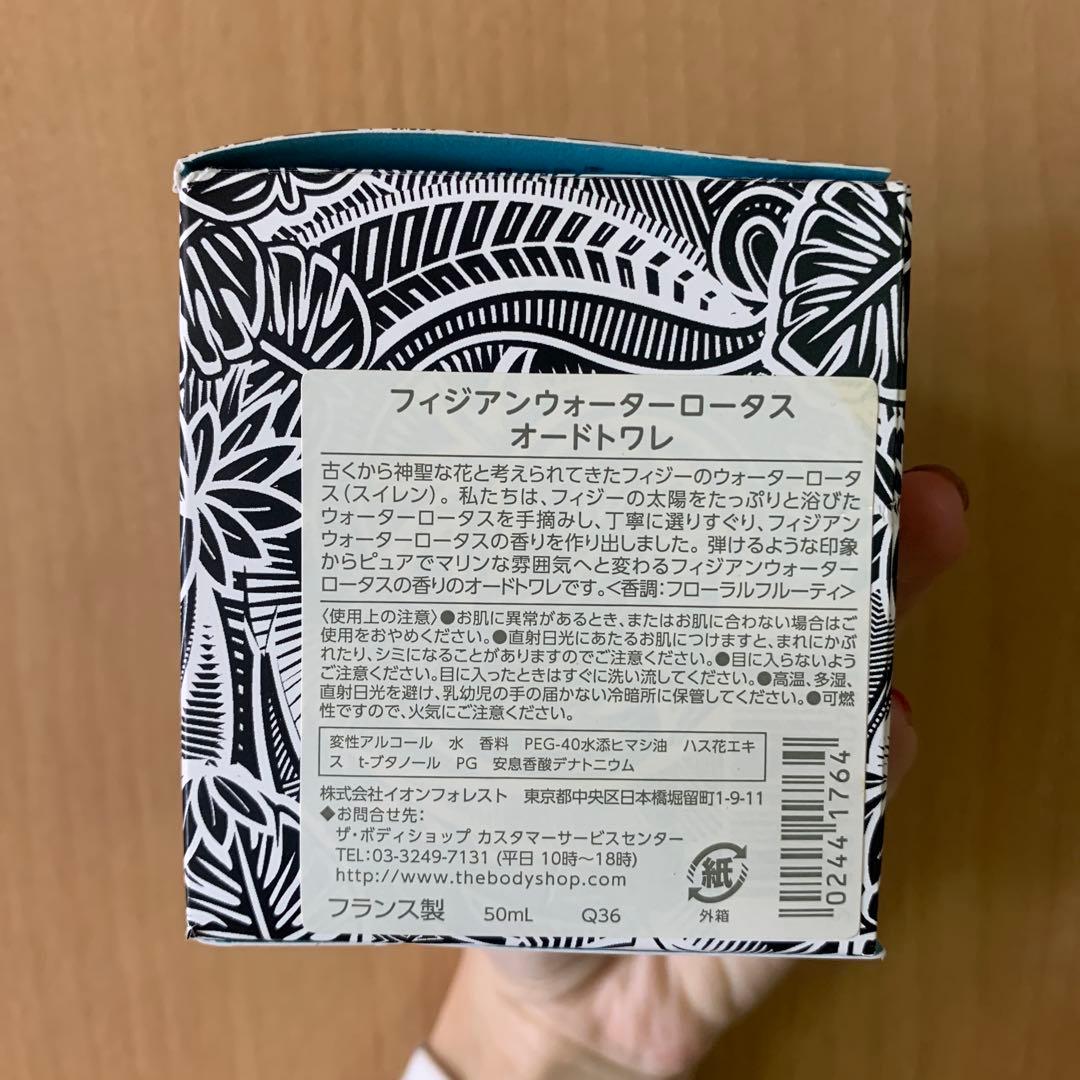 フィジアンウォーターロータス
オードトワレ
古くから神聖な花と考えられてきたフィジーのウォーターロータ
ス(スイレン)。私たちは、フィジーの太陽をたっぷりと浴びた
ウォーターロータスを手摘みし、丁寧に選りすぐり、フィジアン
ウォーターロータスの香りを作り出しました。弾けるような印象
からピュアでマリンな雰囲気へと変わるフィジアンウォーター
ロータスの香りのオードトワレです。<香調:フローラルフルーティ>
〈使用上の注意〉●お肌に異常があるとき、またはお肌に合わない場合はご
使用をおやめください。●直射日光にあたるお肌につけますと、まれにかぶ
れたり、シミになることがありますのでご注意ください。●目に入らないよう
ご注意ください。目に入ったときはすぐに洗い流してください。●高温、多湿、
直射日光を避け、乳幼児の手の届かない冷暗所に保管してください。●可燃
性ですので、火気にご注意ください。
変性アルコール 水 香料 PEG-40水添ヒマシ油 ハス花エキ
ス t-ブタノール PG 安息香酸デナトニウム
株式会社イオンフォレスト 東京都中央区日本橋堀留町1-9-11
◆お問合せ先:
ザ・ボディショップ カスタマーサービスセンター
TEL:03-3249-7131 (平日 10時〜18時)
http://www.thebodyshop.com
フランス製 50mL Q36
紙
外箱
02441764